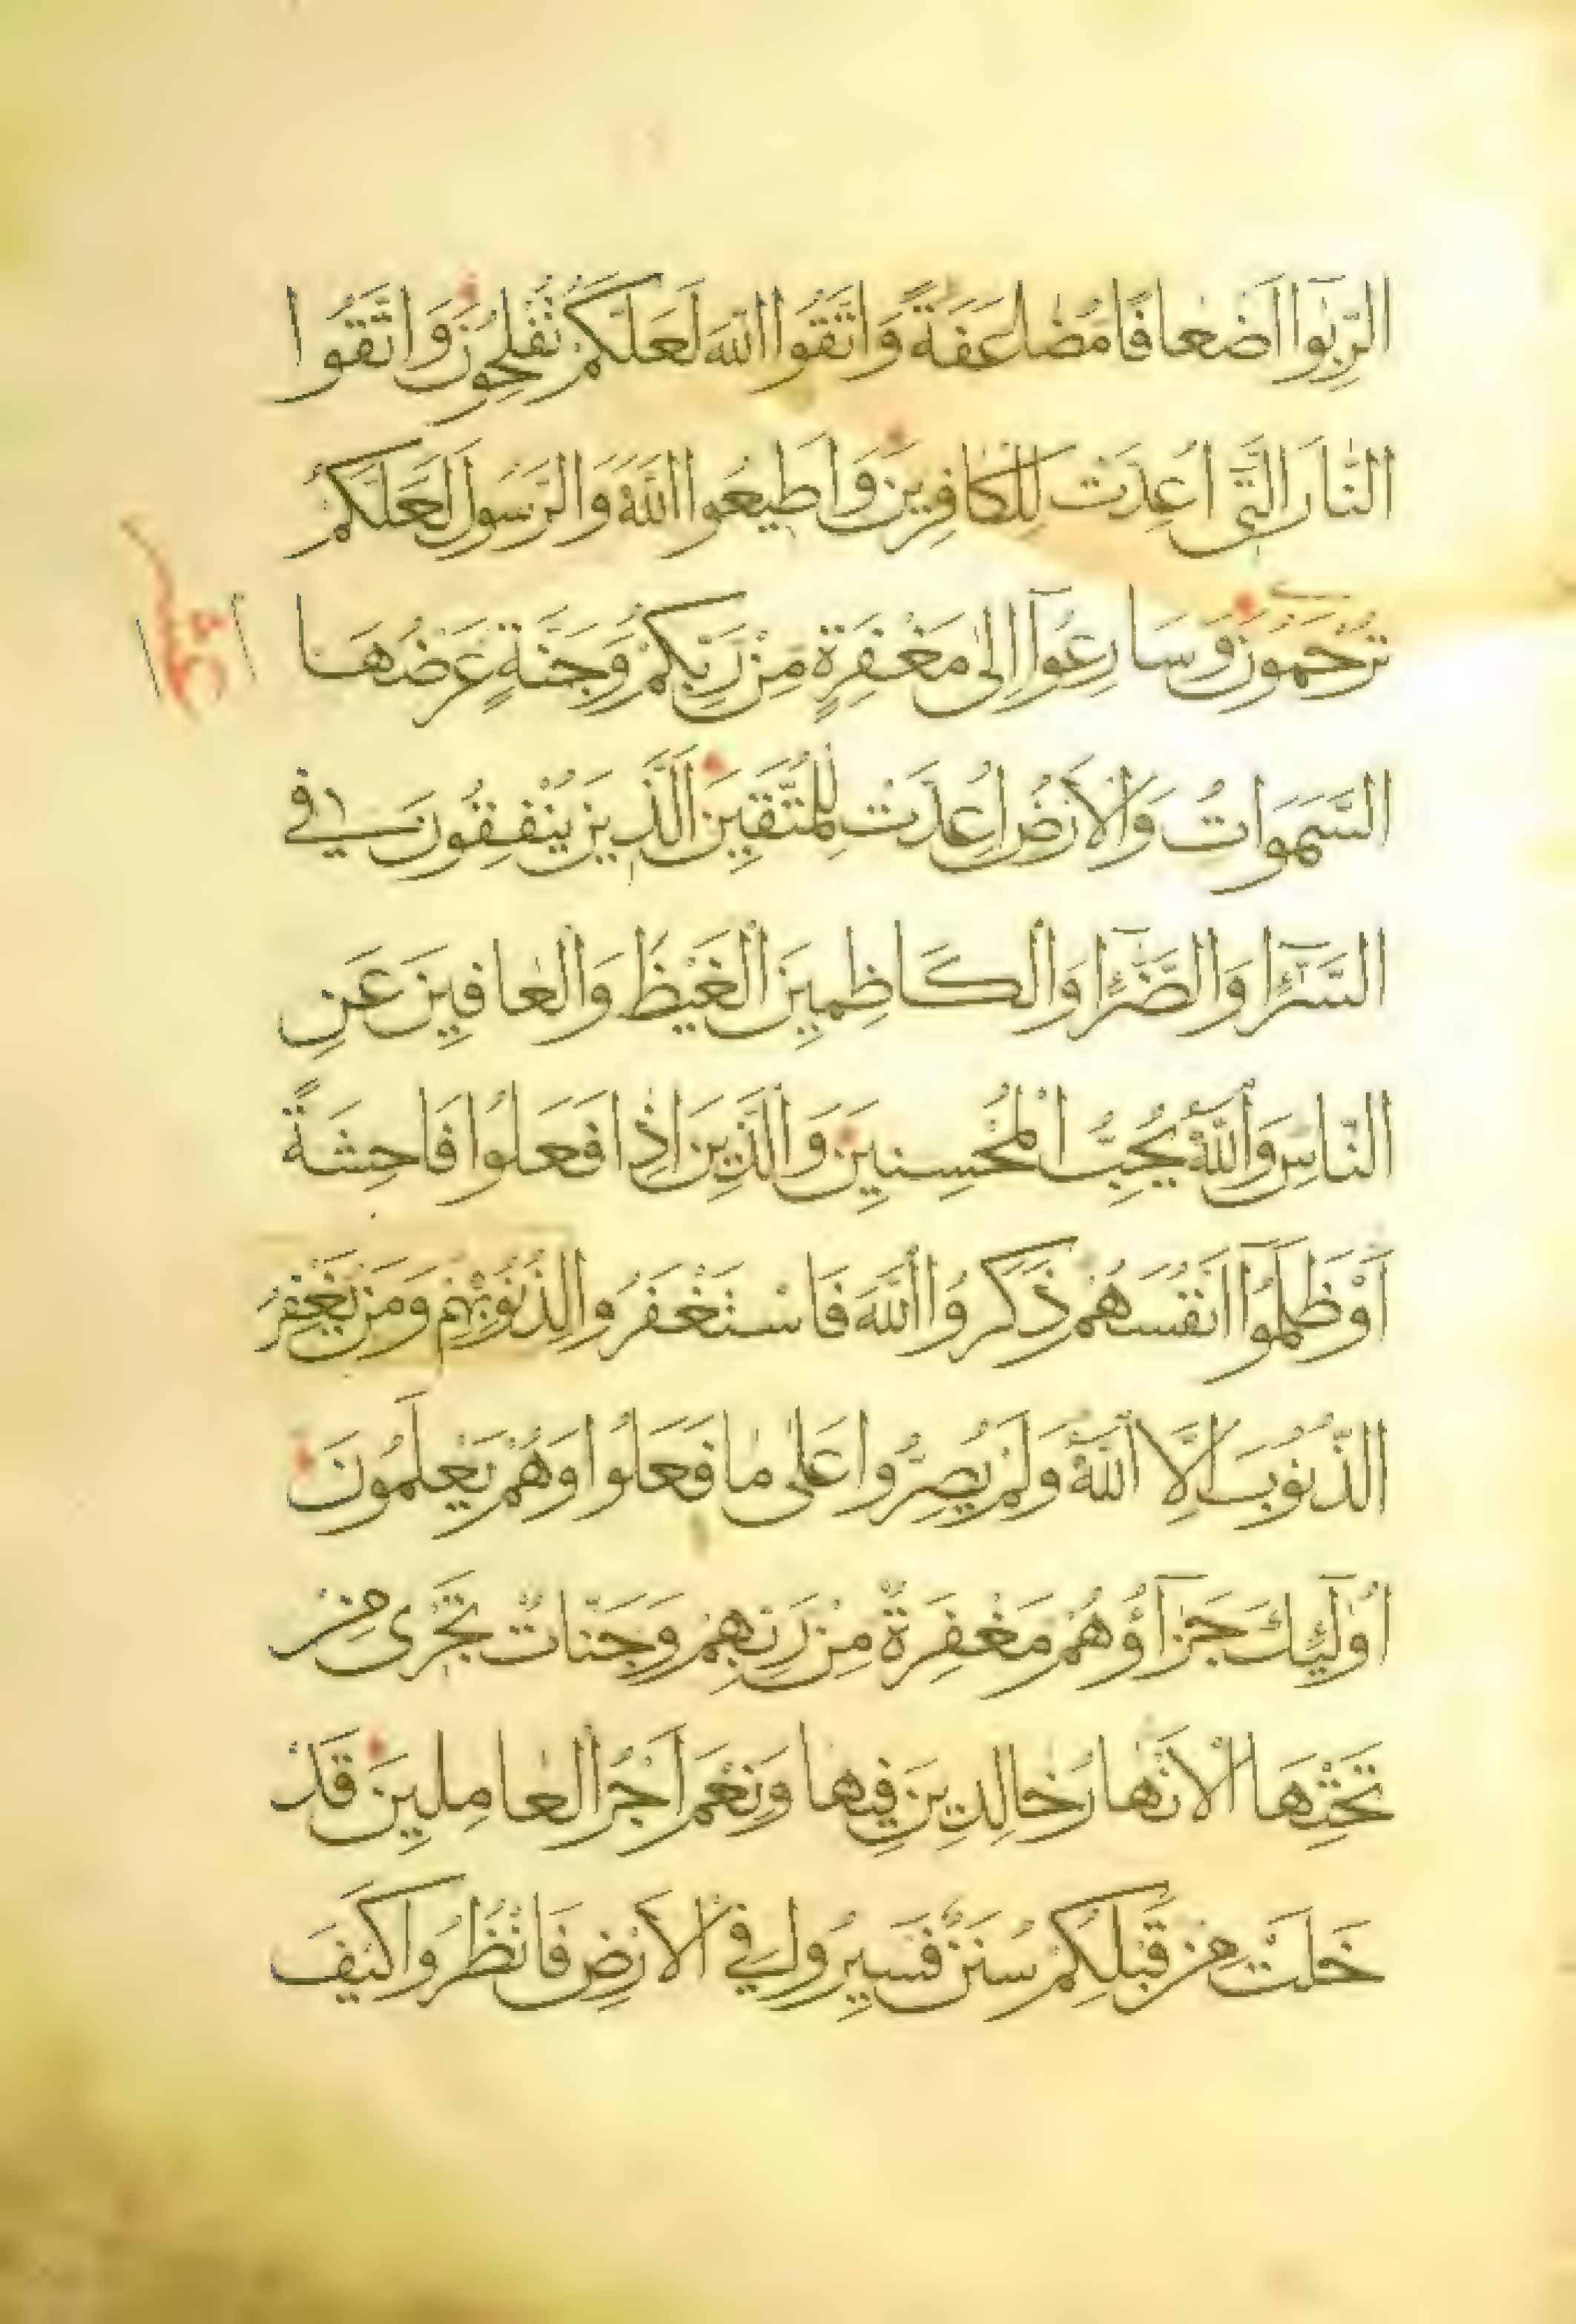 الرِّبٰوا اَضْعافًا مُضٰاعَفَةً وَاتَّقُوا اللّٰهَ لَعَلَّكُمْ تُفْلِحُونَ وَاتَّقُوا
النّٰارَ الَّتِي اُعِدَّتْ لِلْكٰافِرِينَ وَاَطِيعُوا اللّٰهَ وَالرَّسُولَ لَعَلَّكُمْ
تُرْحَمُونَ وَسَارِعُوٓا اِلىٰ مَغْفِرَةٍ مِنْ رَبِّكُمْ وَجَنَّةٍ عَرْضُهَا
السَّمَوَاتُ وَالْاَرْضُ اُعِدَّتْ لِلْمُتَّقِينَ الَّذِينَ يُنْفِقُونَ فِي
السَّرّٓا وَالضَّرّٓا وَالْكَاظِمِينَ الْغَيْظَ وَالْعٰافِينَ عَنِ
النّاسِ وَاللّٰهُ يُحِبُّ الْمُحْسِنِينَ وَالَّذِينَ اِذٰا فَعَلُوا فَاحِشَةً
اَوْ ظَلَمُوٓا اَنْفُسَهُمْ ذَكَرُوا اللّٰهَ فَاسْتَغْفَرُوا لِذُنُوبِهِمْ وَمَنْ يَغْفِرُ
الذُّنُوبَ اِلَّا اللّٰهُ وَلَمْ يُصِرُّوا عَلىٰ مٰا فَعَلُوا وَهُمْ يَعْلَمُونَ
اُولٰٓئِكَ جَزٰٓاؤُهُمْ مَغْفِرَةٌ مِنْ رَبِّهِمْ وَجَنّٰاتٌ تَجْرٰى مِنْ
تَحْتِهَا الْاَنْهٰارُ خٰالِدِينَ فِيهٰا وَنِعْمَ اَجْرُ الْعٰامِلِينَ قَدْ
خَلَتْ مِنْ قَبْلِكُمْ سُنَنٌ فَسِيرُوا فِي الْاَرْضِ فَانْظُرُوا كَيْفَ